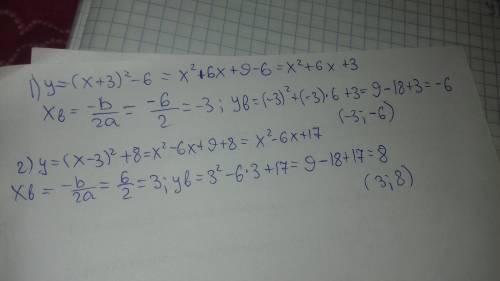 1) y=(x+3)²-6 = x²+6x+9-6=x²+6x+3
Xв = -b/2a = -6/2 = -3; yв=(-3)²+(-3)·6+3=9-18+3=-6
(-3;-6)
2) y=(x-3)²+8=x²-6x+9+8=x²-6x+17
Xв = -b/2a = 6/2 = 3; yв=3²-6·3+17=9-18+17=8
(3;8)